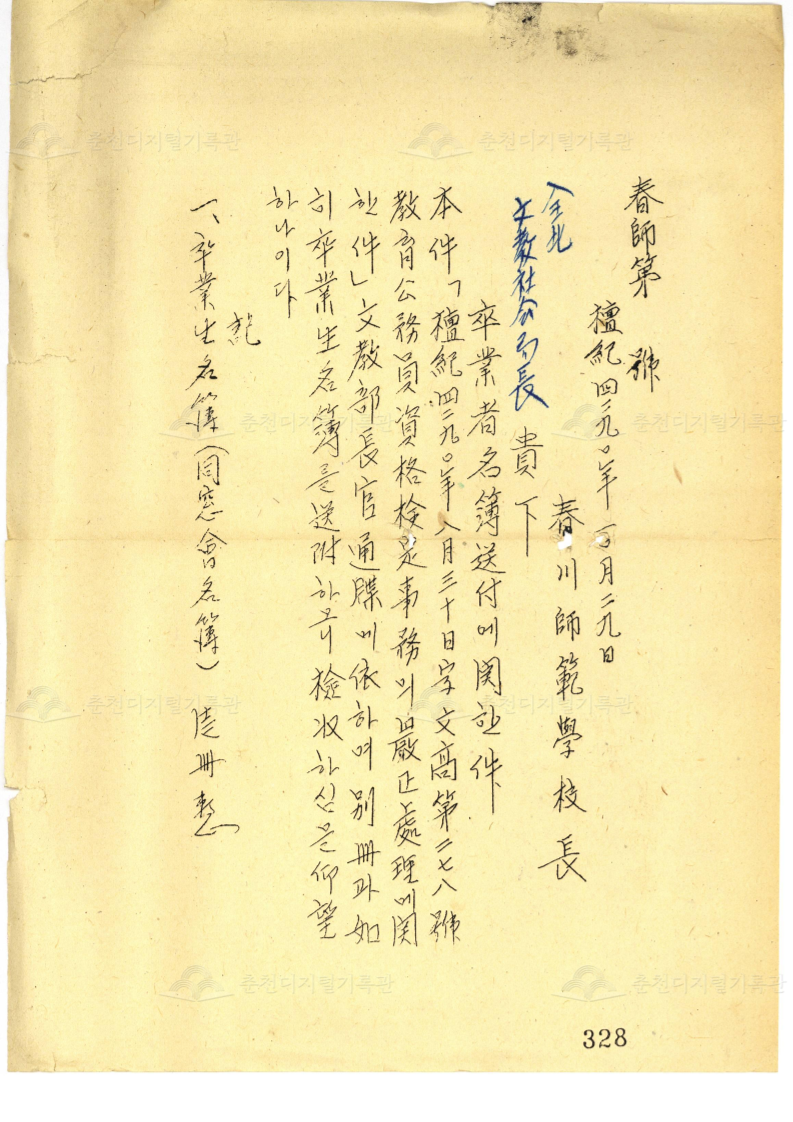 春師第　號
檀紀四二九〇年 一〇月二九日
春川師範學校長
全北
文敎社会局長 貴下
卒業者名簿送付에関한件
本件「檀紀四二九〇年八月三十日字文高第二七八號
敎育公務員資格檢定事務의嚴正處理에関
한件」文敎部長官通牒에依하여別冊과如
히卒業生名簿를送附하오니檢收하심을仰望
하나이다
記
一、卒業生名簿(同窓會名簿) 壱冊
328
춘천디지털기록관